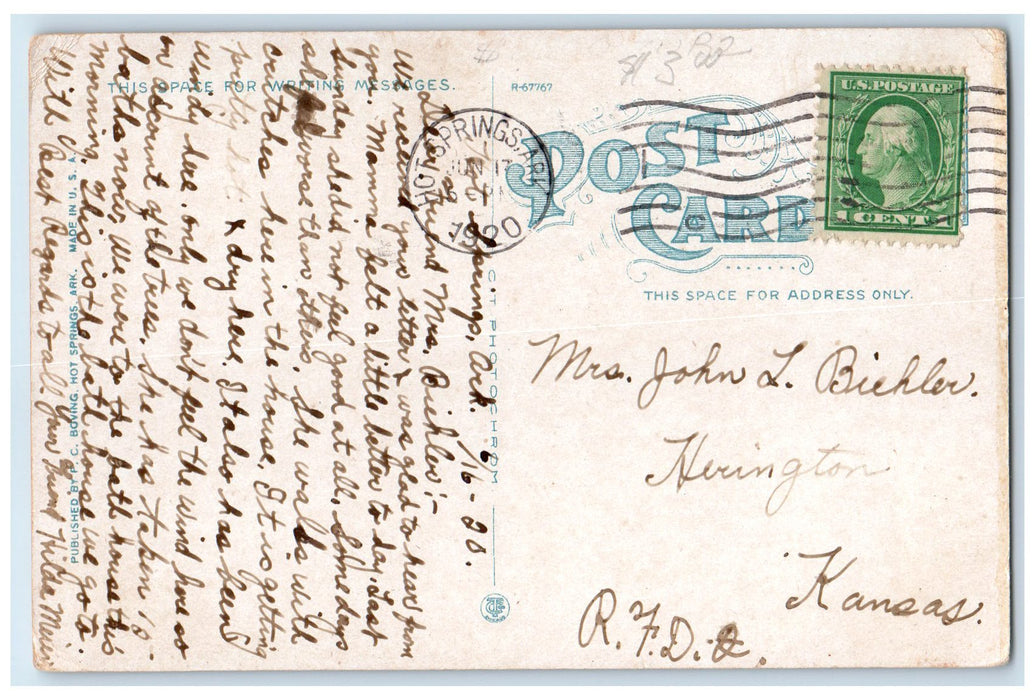 THIS SPACE FOR WRITING MESSAGES.
R-67767
POST
CARD
THIS SPACE FOR ADDRESS ONLY.
U.S. POSTAGE
1 CENT 1
HOT SPRINGS, ARK.
JUN 17
1920
$ 3
Mrs. John L. Biehler.
Herington
Kansas.
R.F.D.
Springs, Ark. 6/16-20.
Dear Friend Mrs. Biehler:-
We received your letter & was glad to hear from
you. Mamma felt a little better to day. Last
Sunday she did not feel good at all. Some days
she is worse than others. She walks with
crutches here in the house. It is getting
pretty hot & dry here. It also has been
windy here only we don't feel the wind here so
on account of the trees. She has taken 18
baths now. We were to the bath house this
morning. This is the bath house we go to.
With Best Regards to all Your friend Hilda
C.T. PHOTOCHROM
PUBLISHED BY P. C. BOVING, HOT SPRINGS, ARK. MADE IN U. S. A.